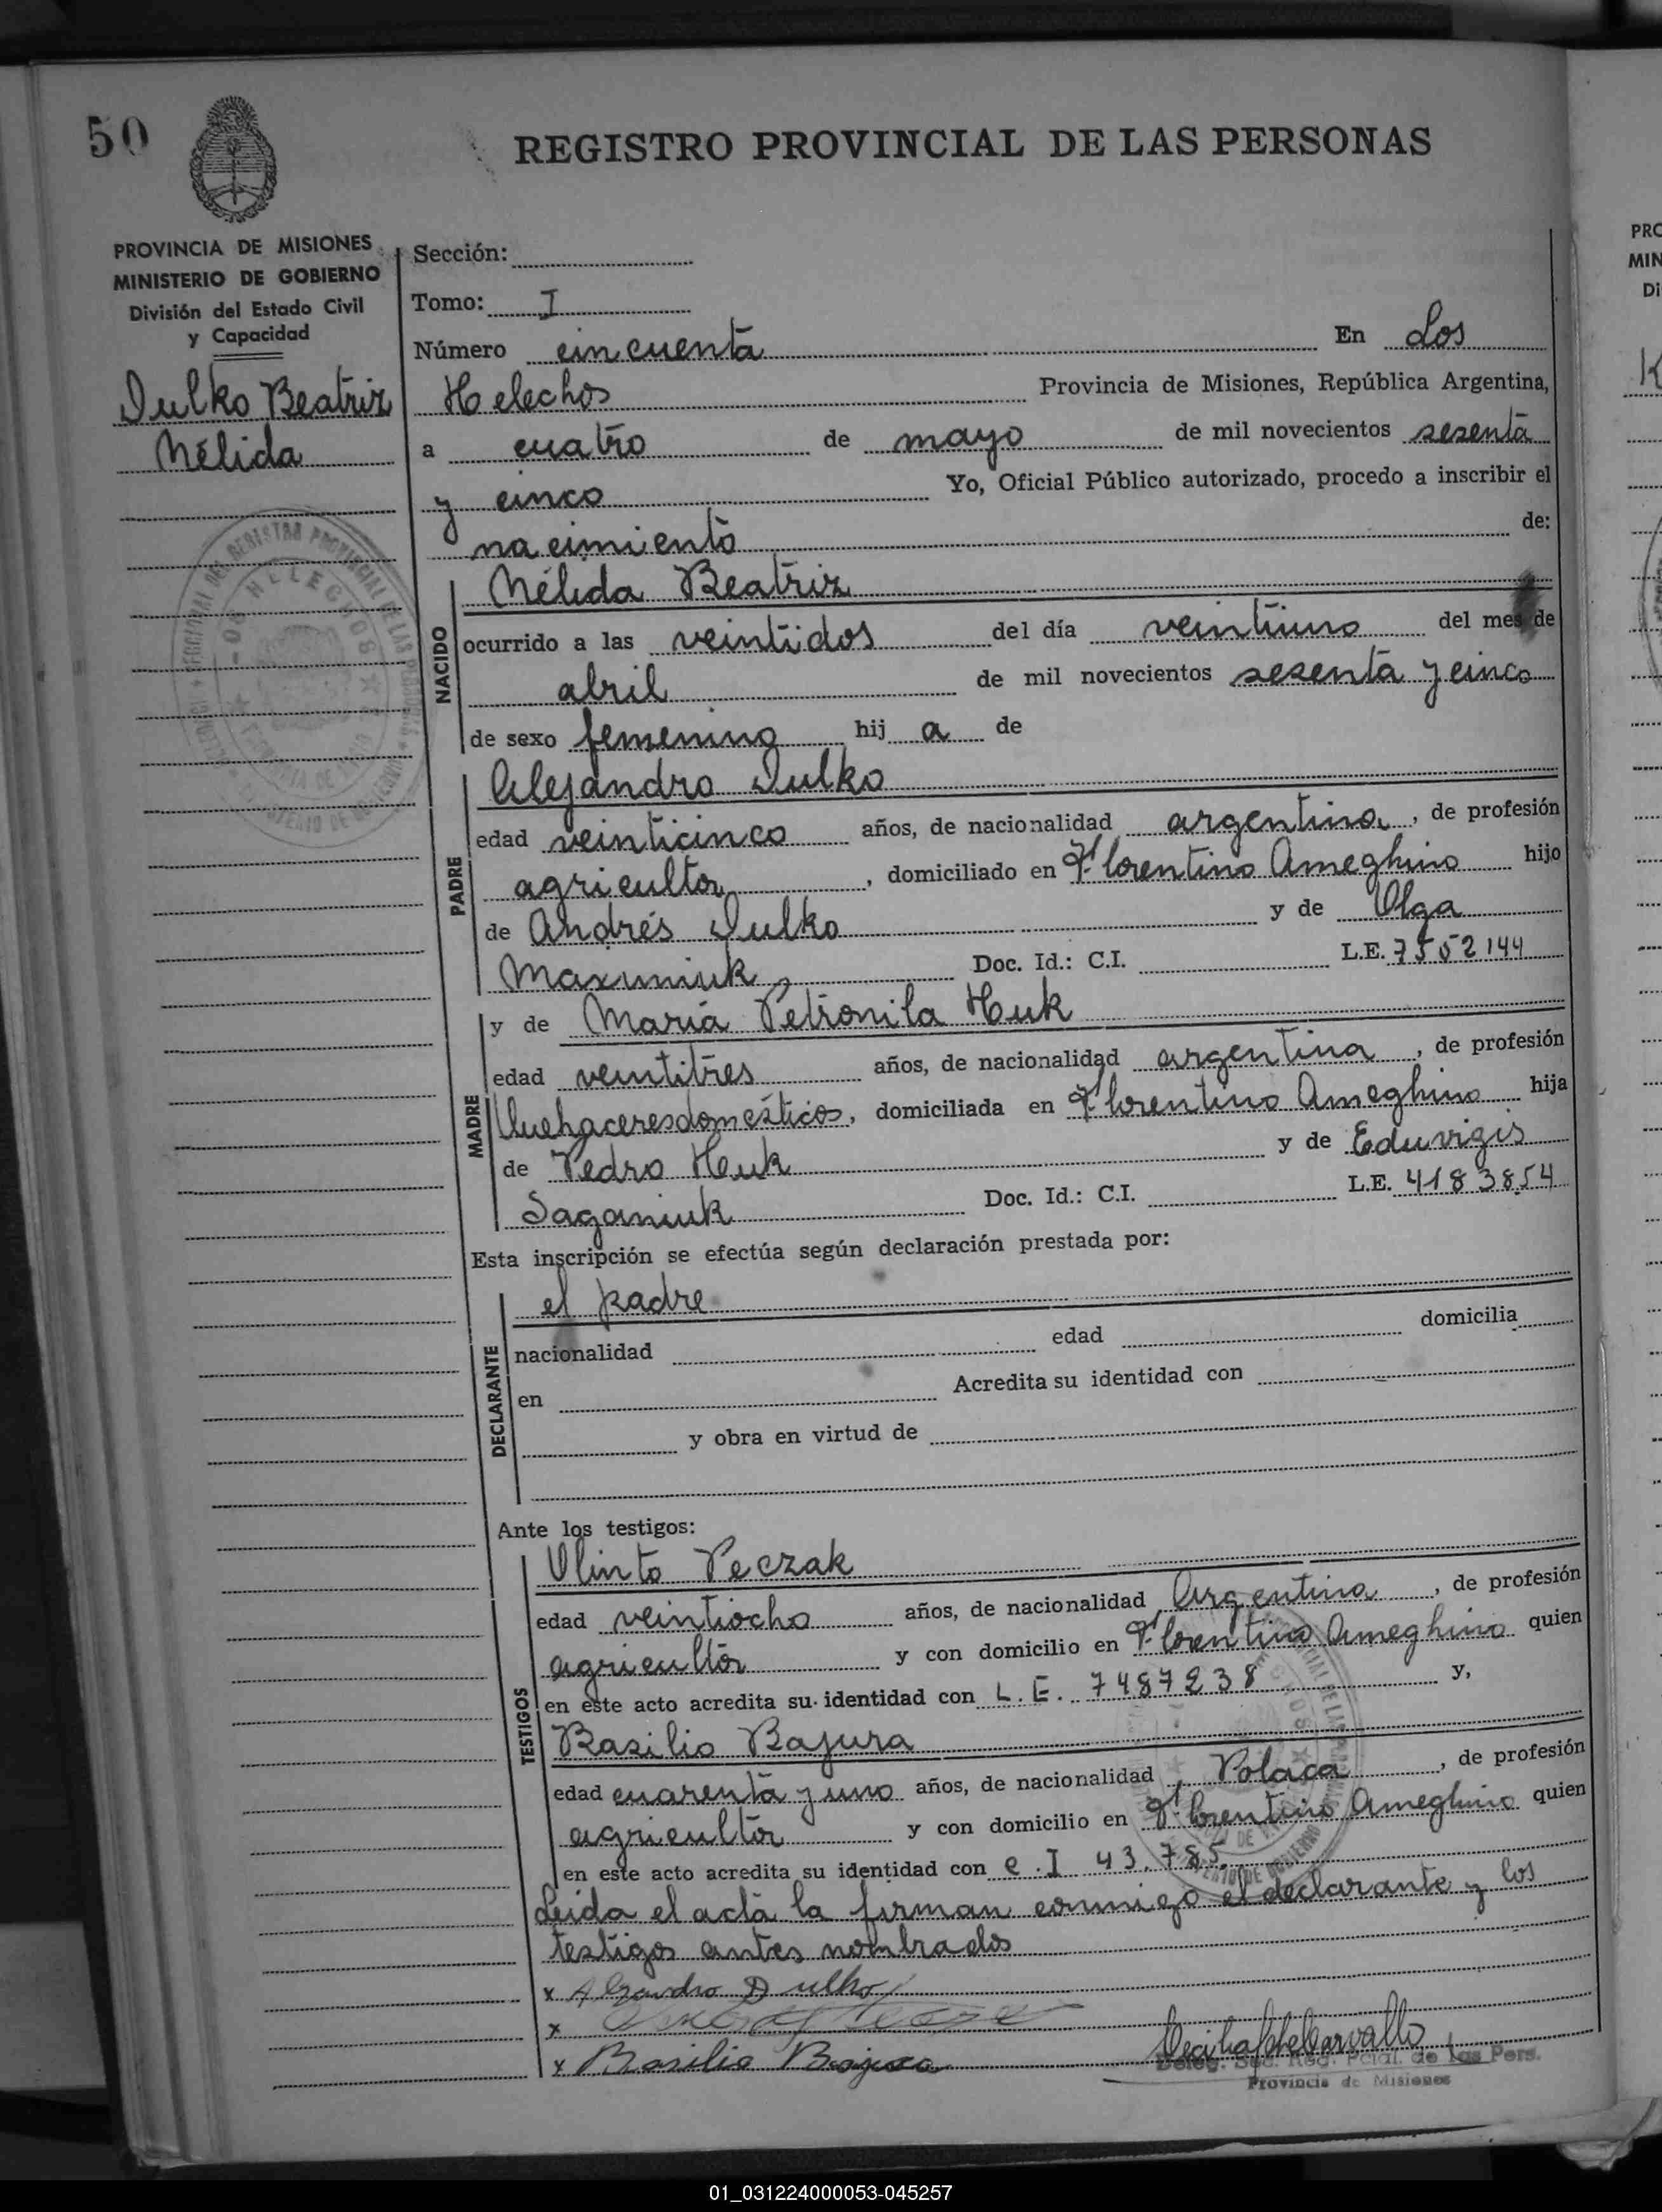 50
REGISTRO PROVINCIAL DE LAS PERSONAS
PROVINCIA DE MISIONES
MINISTERIO DE GOBIERNO
División del Estado Civil
y Capacidad
Dulko Beatriz
Nélida
Sección:
Tomo: I
Número cincuenta En Los
Helechos Provincia de Misiones, República Argentina,
a cuatro de mayo de mil novecientos sesenta
y cinco Yo, Oficial Público autorizado, procedo a inscribir el
nacimiento de:
NACIDO
Nélida Beatriz
ocurrido a las veintidos del día veintiuno del mes de
abril de mil novecientos sesenta y cinco
de sexo femenino hij a de
PADRE
Alejandro Dulko
edad veinticinco años, de nacionalidad argentina, de profesión
agricultor, domiciliado en Florentino Ameghino hijo
de Andrés Dulko y de Olga
Maxuniuk Doc. Id.: C.I. L.E. 7552144
MADRE
y de María Petronila Huk
edad veintitres años, de nacionalidad argentina, de profesión
Quehaceres domésticos, domiciliada en Florentino Ameghino hija
de Pedro Huk y de Eduvigis
Saganiuk Doc. Id.: C.I. L.E. 4183854
Esta inscripción se efectúa según declaración prestada por:
DECLARANTE
el padre
nacionalidad edad domicilia
en Acredita su identidad con
y obra en virtud de
Ante los testigos:
TESTIGOS
Olinto Peczak
edad veintiocho años, de nacionalidad Argentina, de profesión
agricultor y con domicilio en Florentino Ameghino quien
en este acto acredita su identidad con L.E. 7487238 y,
Basilio Bajura
edad cuarenta y uno años, de nacionalidad Polaca, de profesión
agricultor y con domicilio en Florentino Ameghino quien
en este acto acredita su identidad con C.I 43.785.
Leida el acta la firman conmigo el declarante y los
testigos antes nombrados
x Alejandro Dulko
x
x Basilio Bajura
Deleg. Sec. Reg. Pcial. de las Pers.
Provincia de Misiones
PRO
MIN
Di
01_031224000053-045257